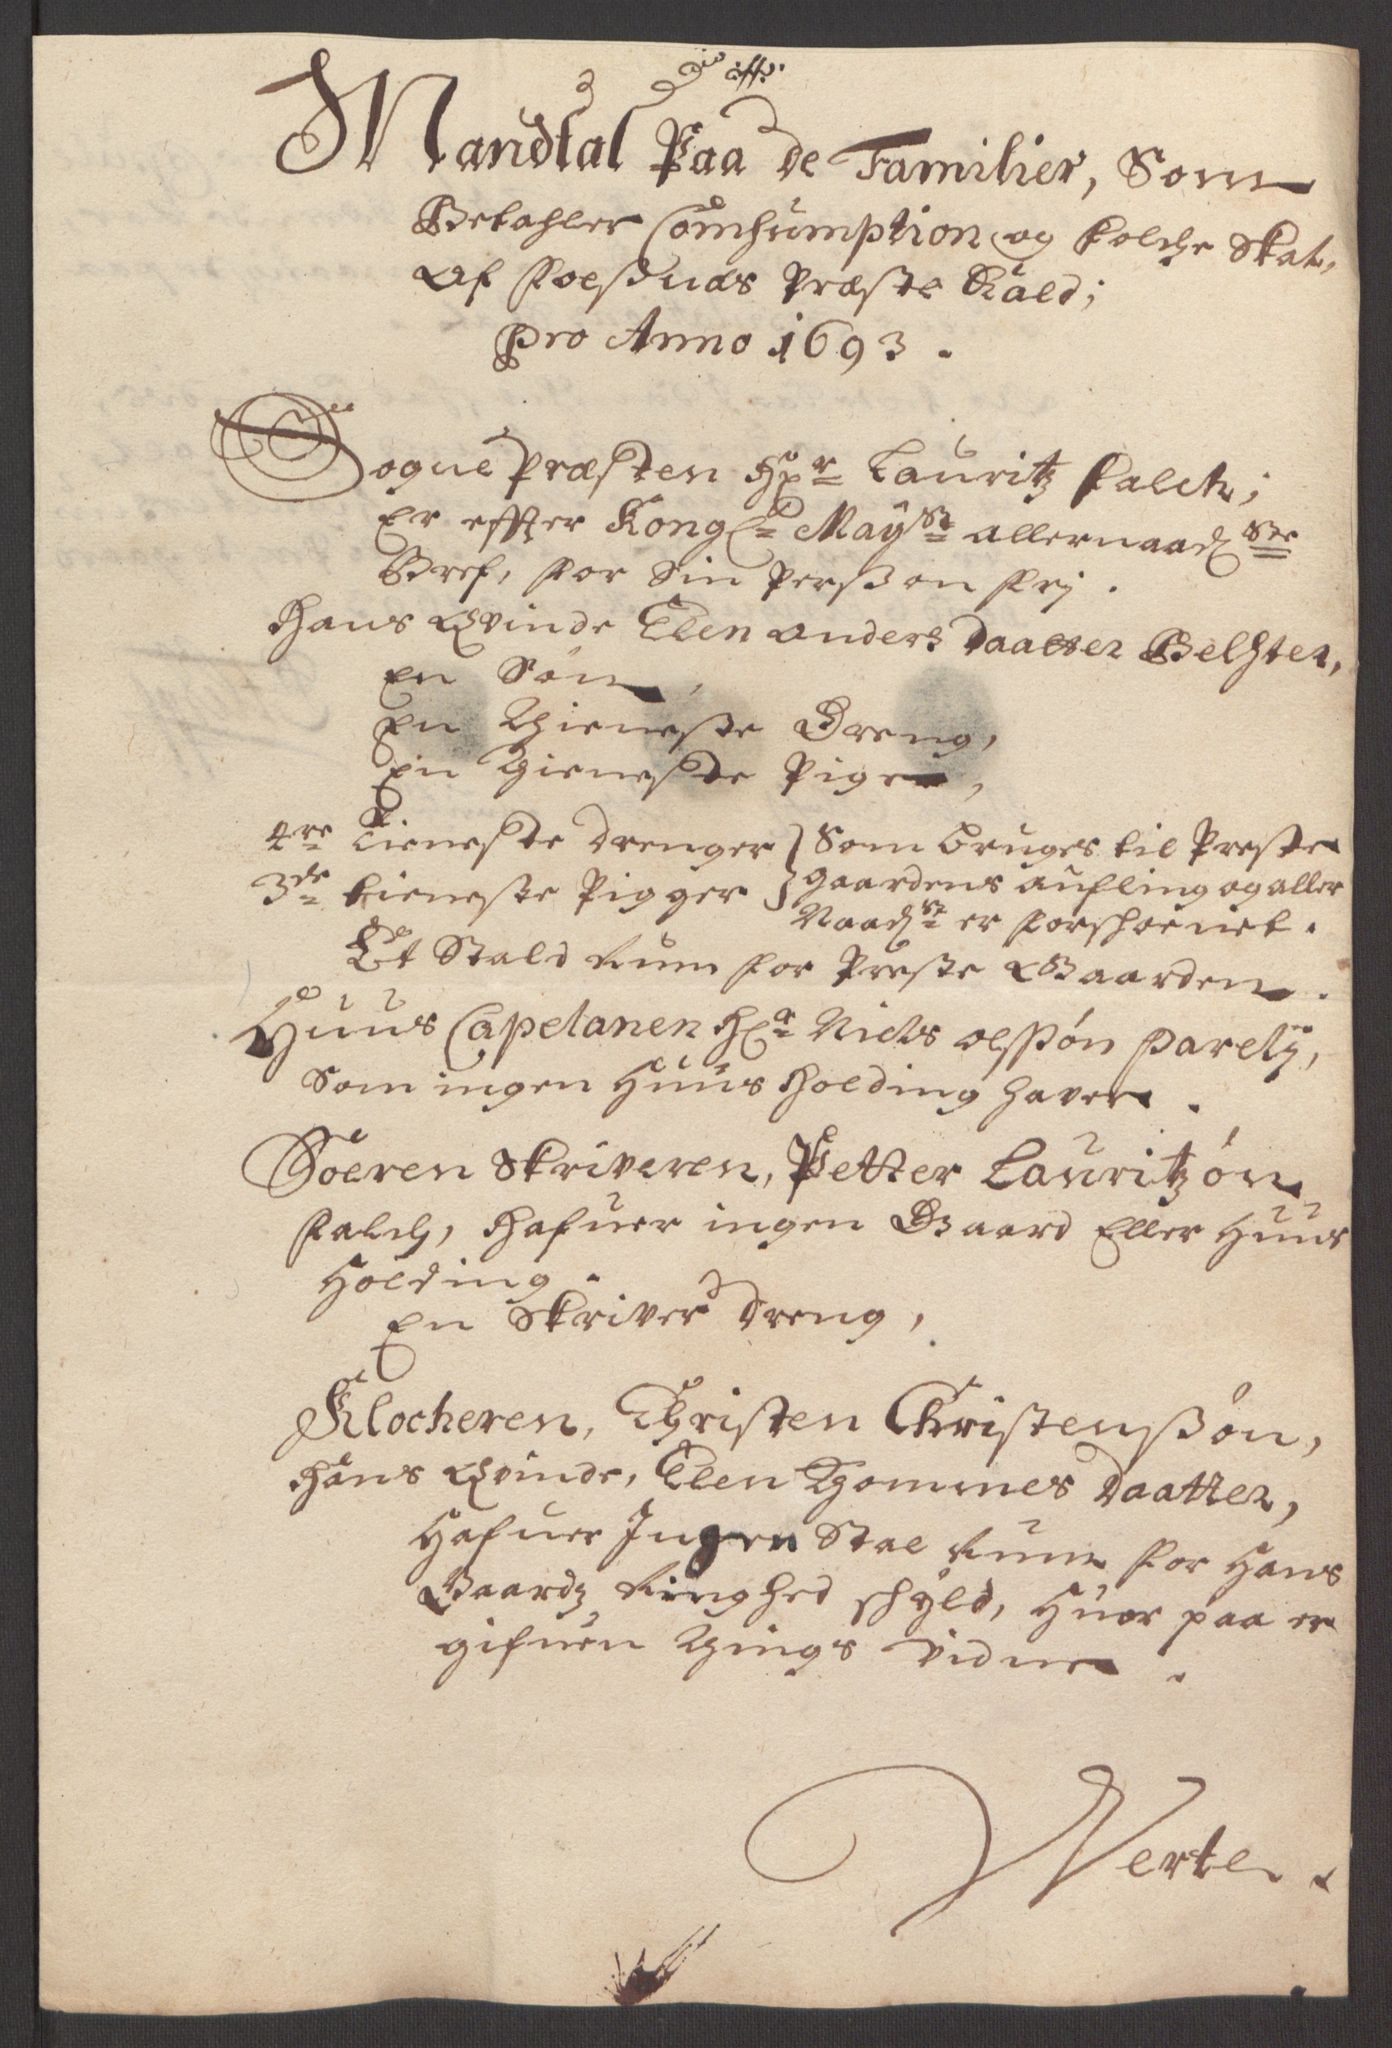 Mandtal Paa de Familier, Som
Betahler Comsumption og folche Skat,
Af Foesnæs Præste Kald;
Pro Anno 1693.
Sogne Præsten Hr Lauritz Falch;
Er effter Kongl Mayst allernaadste
Bref, for Sin Persson frj.
Hans Qvinde Elen Anders Daatter Belhter,
En Søn,
En Thieneste Dreng,
En Thieneste Pige,
4re Tieneste drenger } Som bruges til Preste
3de tieneste Pigger } gaardens aufling og aller
Naadst er forschoenet.
Et Stald Rum for Preste Gaarden.
Huus Capelanen Hr Niels olssøn Parelj,
Som ingen Huus holding haver.
Soeren Skriveren, Petter Lauritzøn
Falch, Hafuer ingen Gaard Eller Huus
Holding.
En Skriver Dreng,
Klocheren, Christen Christenssøn,
Hans Qvinde, Elen Thommes Daatter,
Hafuer Ingen Stal Rum for Hans
Gaardz Ringhed schyld, Huor paa er
gifuen Things vidne.
Verte.